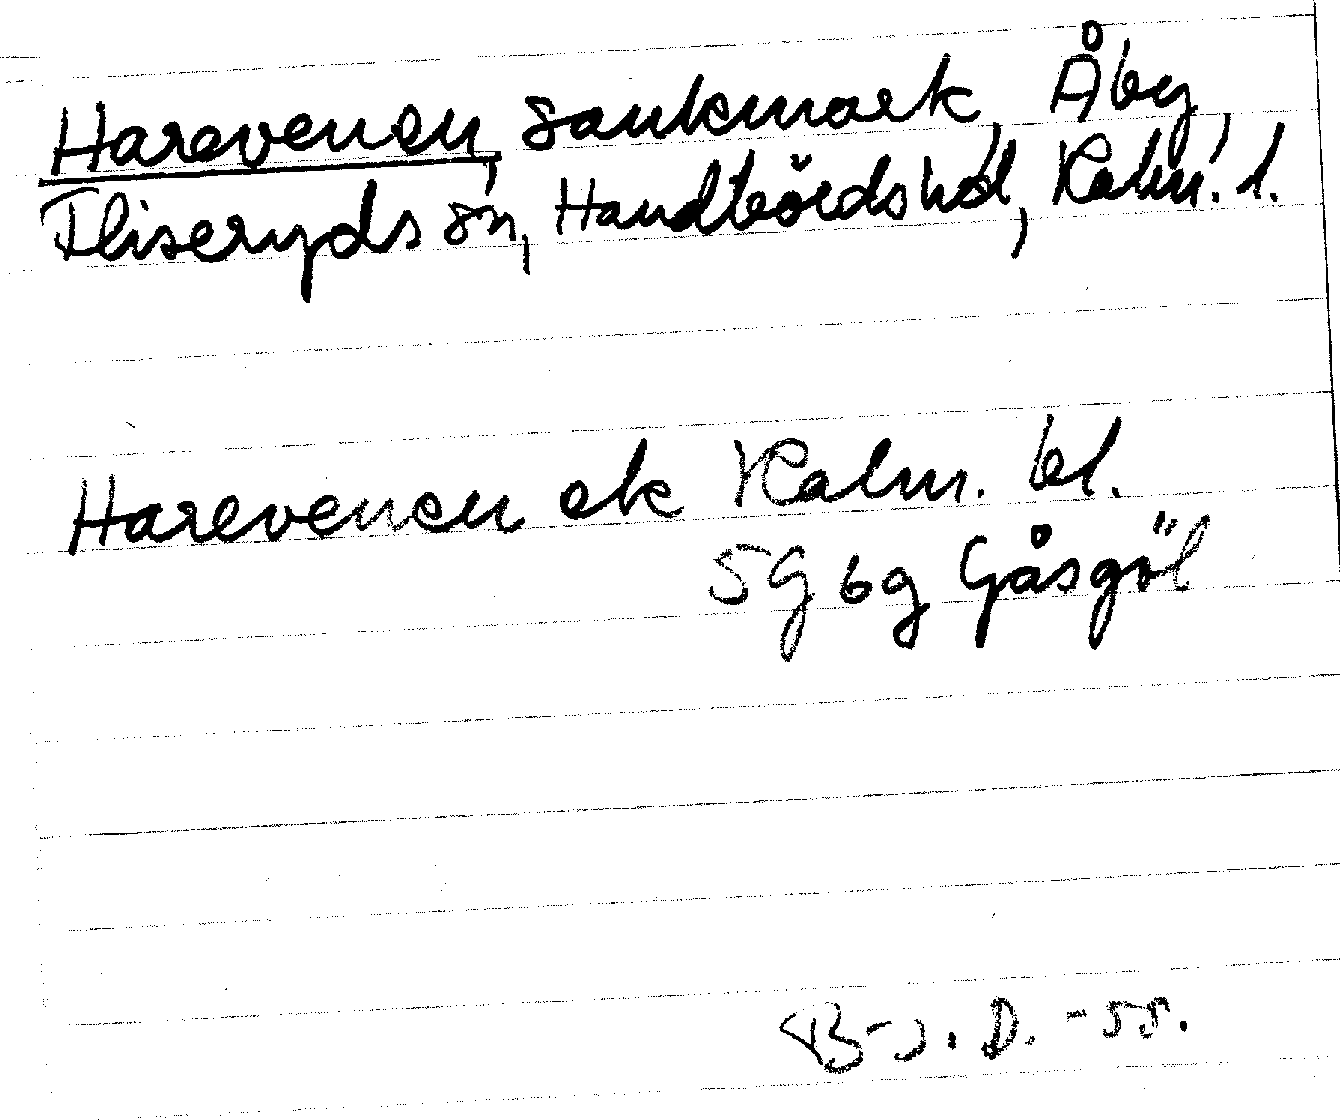 Harevenen, sankmark, Åby,
Fliseryds sn, Handbörds hd, Kalm. l.
Harevenen ek Kalm. bl.
5G6g Gåsgöl
B-J. D. -55.